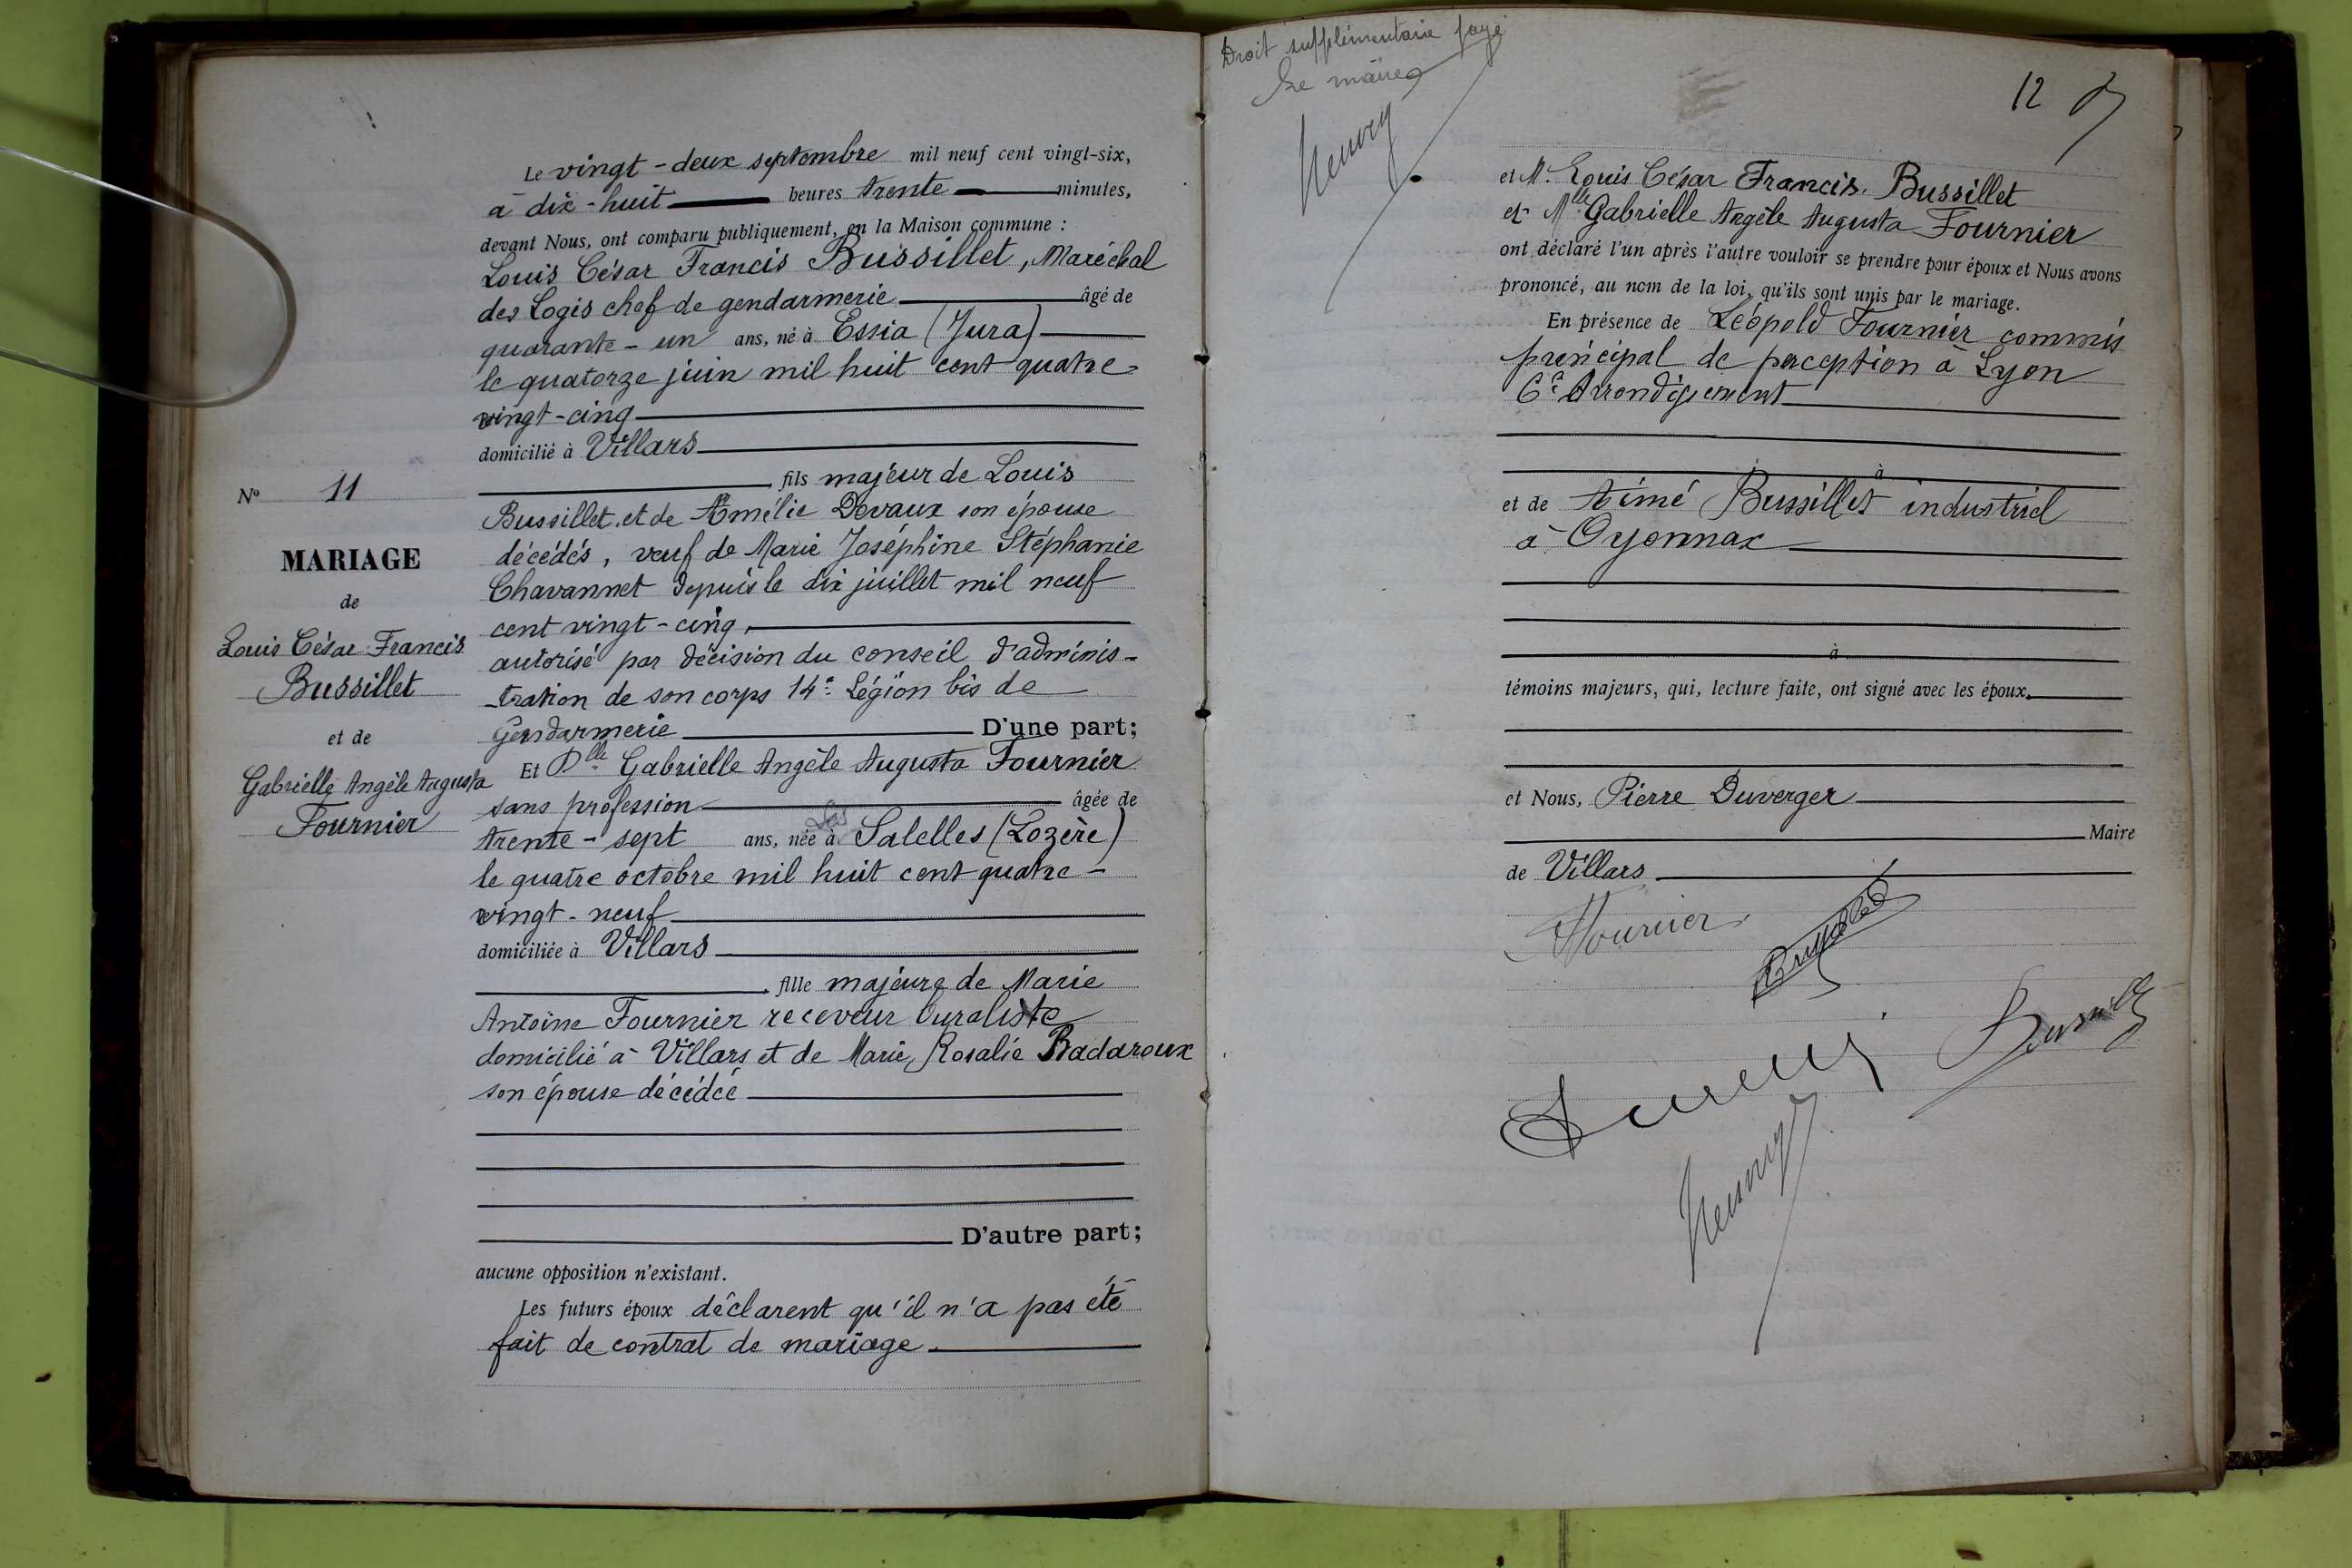 Le vingt-deux septembre mil neuf cent vingt-six,
à dix-huit heures trente minutes,
devant Nous, ont comparu publiquement, en la Maison commune :
Louis César Francis Bussillet, Maréchal
des Logis chef de gendarmerie âgé de
quarante-un ans, né à Essia (Jura)
le quatorze juin mil huit cent quatre-
vingt-cinq
domicilié à Villars
fils majeur de Louis
Bussillet et de Amélie Devaux son épouse
décédés, veuf de Marie Joséphine Stéphanie
Chavannet depuis le dix juillet mil neuf
cent vingt-cinq,
autorisé par décision du conseil d'adminis-
-tration de son corps 14e Légion bis de
Gendarmerie D'une part;
Et Dlle Gabrielle Angèle Augusta Fournier
sans profession âgée de
trente-sept ans, née à Las Salelles (Lozère)
le quatre octobre mil huit cent quatre-
vingt-neuf
domiciliée à Villars
fille majeure de Marie
Antoine Fournier receveur buraliste
domicilié à Villars et de Marie, Rosalie Badaroux
son épouse décédée
D'autre part;
aucune opposition n'existant.
Les futurs époux déclarent qu'il n'a pas été
fait de contrat de mariage.
No 11
MARIAGE
de
Louis César Francis
Bussillet
et de
Gabrielle Angèle Augusta
Fournier
Droit supplémentaire payé
Le maire
12
et M. Louis César Francis Bussillet
et Mlle Gabrielle Angèle Augusta Fournier
ont déclaré l'un après l'autre vouloir se prendre pour époux et Nous avons
prononcé, au nom de la loi, qu'ils sont unis par le mariage.
En présence de Léopold Fournier commis
principal de perception à Lyon
6e Arrondissement
à
et de Aimé Bussillet industriel
à Oyonnax
à
témoins majeurs, qui, lecture faite, ont signé avec les époux.
et Nous, Pierre Duverger
Maire
de Villars
Fournier
Bussillet